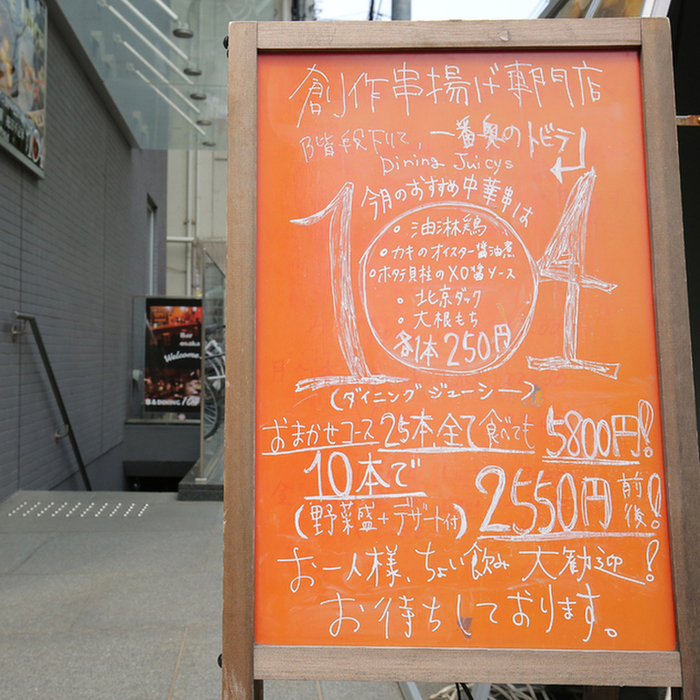 創作串揚げ専門店
階段下りて、一番奥のトビラ
Dining Juicys
104
今月のおすすめ中華串は
・油淋鶏
・カキのオイスター醤油煮
・ホタテ貝柱のXO醤ソース
・北京ダック
・大根もち
各1本250円
(ダイニングジューシー)
おまかせコース25本全て食べても5800円!
10本で2550円前後!
(野菜盛+デザート付)
お一人様、ちょい飲み大歓迎!
お待ちしております。
Bar
Welcome...
& DINING 10